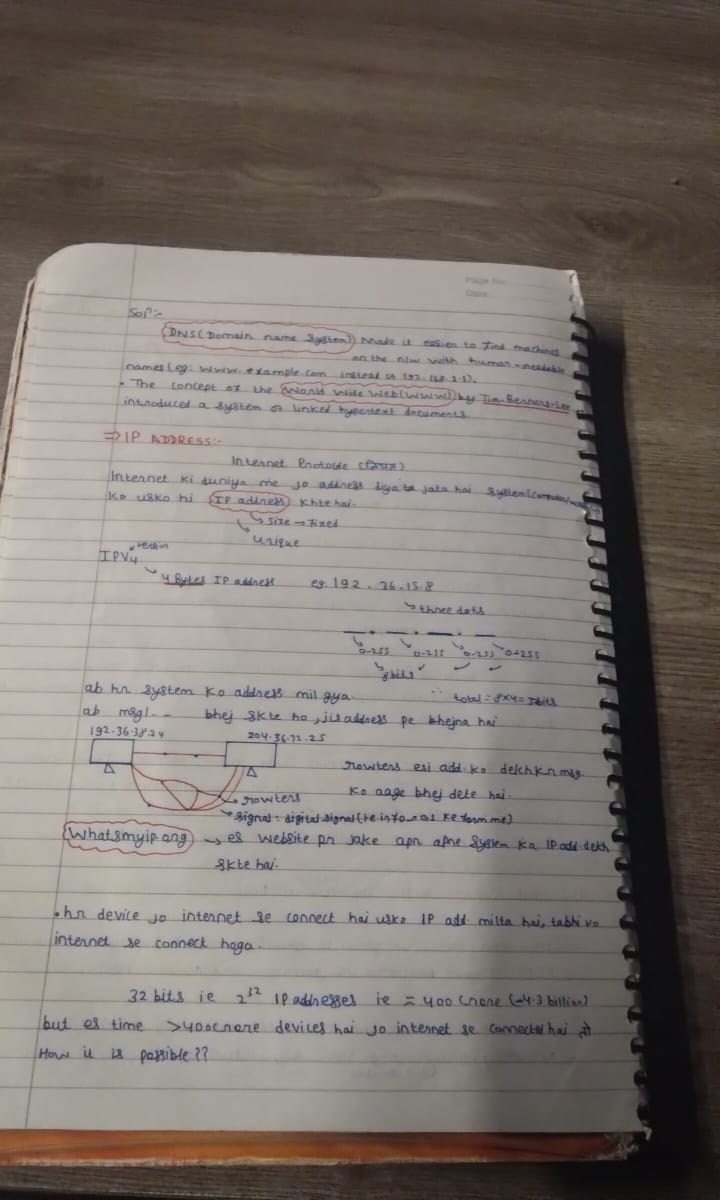 Page No.
Date
Solⁿ:-
DNS (Domain name System) made it easier to find machines
on the n/w with human-readable
names (eg: www.example.com instead of 192.168.2.1).
• The concept of the World Wide Web (WWW) by Tim-Berners-Lee
introduced a system of linked hypertext documents
⇒ IP ADDRESS:-
Internet Protocole (नियम)
Internet ki duniya me jo address diya ta jata hai system (computer/
ko usko hi IP address khte hai.
↳ size → fixed
↳ unique
IPV4 version
↳ 4 Bytes IP address eg. 192.36.15.8
↳ three dots
__.__.__.__
0-255 0-255 0-255 0-255
8bits ✓ ✓ ✓
ab hr system ko address mil gya. ∴ total = 8×4 = 32bits
ab msg!-- bhej skte ho, jis address pe bhejna hai
192.36.38.24 204.36.72.25
rowters esi add. ko dekhkr msg.
ko aage bhej dete hai.
rowters
signal: digital signal (ke info 0 as ke form me)
Whatsmyip.org → es website pr jake apn apne system ka IP add. dekh
skte hai.
• hr device jo internet se connect hai usko IP add. milta hai, tabhi vo
internet se connect hoga.
32 bits ie 2³² IP addresses ie ≈ 400 crore (~4.3 billion)
but es time >400crore devices hai jo internet se connected hai तो
How it is possible??